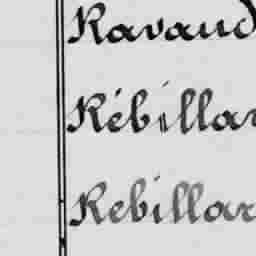 Ravaud
Rébillar
Rebillar